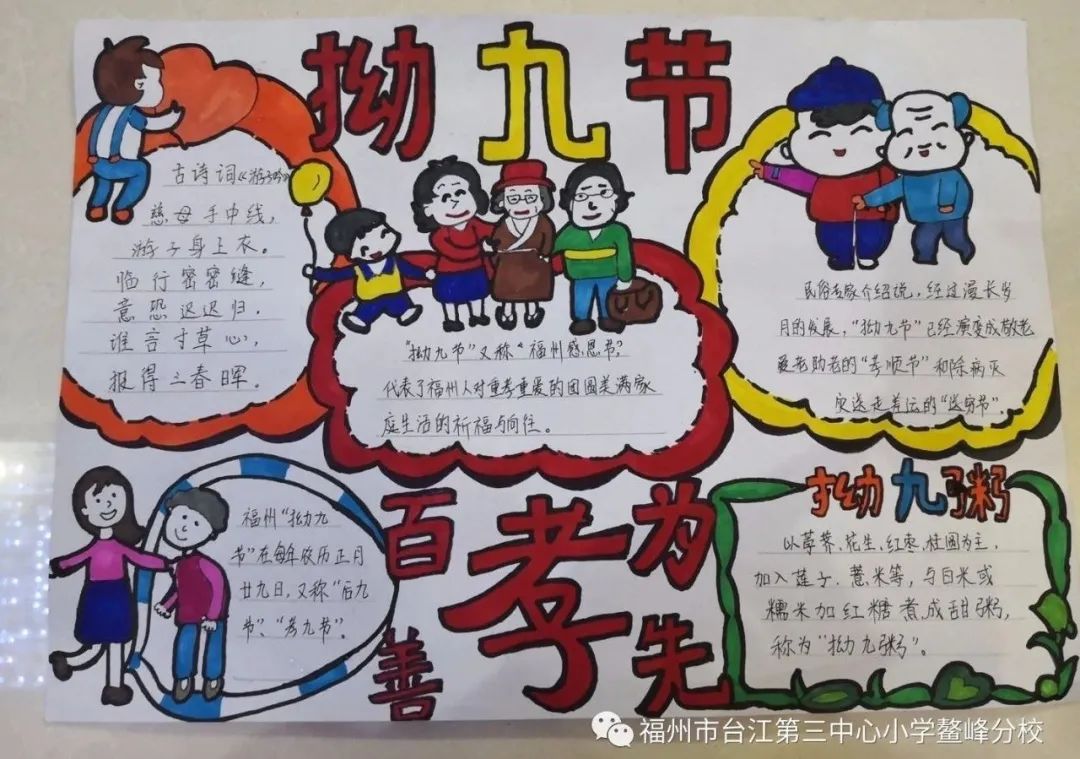 拗九节
古诗词《游子吟》
慈母手中线，
游子身上衣。
临行密密缝，
意恐迟迟归，
谁言寸草心，
报得三春晖。
"拗九节"又称"福州感恩节"，
代表了福州人对重孝重爱的团圆美满家
庭生活的祈福与向往。
民俗专家介绍说，经过漫长岁
月的发展，"拗九节"已经演变成敬老
爱老助老的"孝顺节"和除病灭
灾送走差运的"送穷节"。
福州"拗九
节"在每年农历正月
廿九日，又称"后九
节"、"孝九节"。
百善孝为先
拗九粥
以荸荠、花生、红枣、桂圆为主，
加入莲子、薏米等，与白米或
糯米加红糖煮成甜粥，
称为"拗九粥"。
福州市台江第三中心小学鳌峰分校